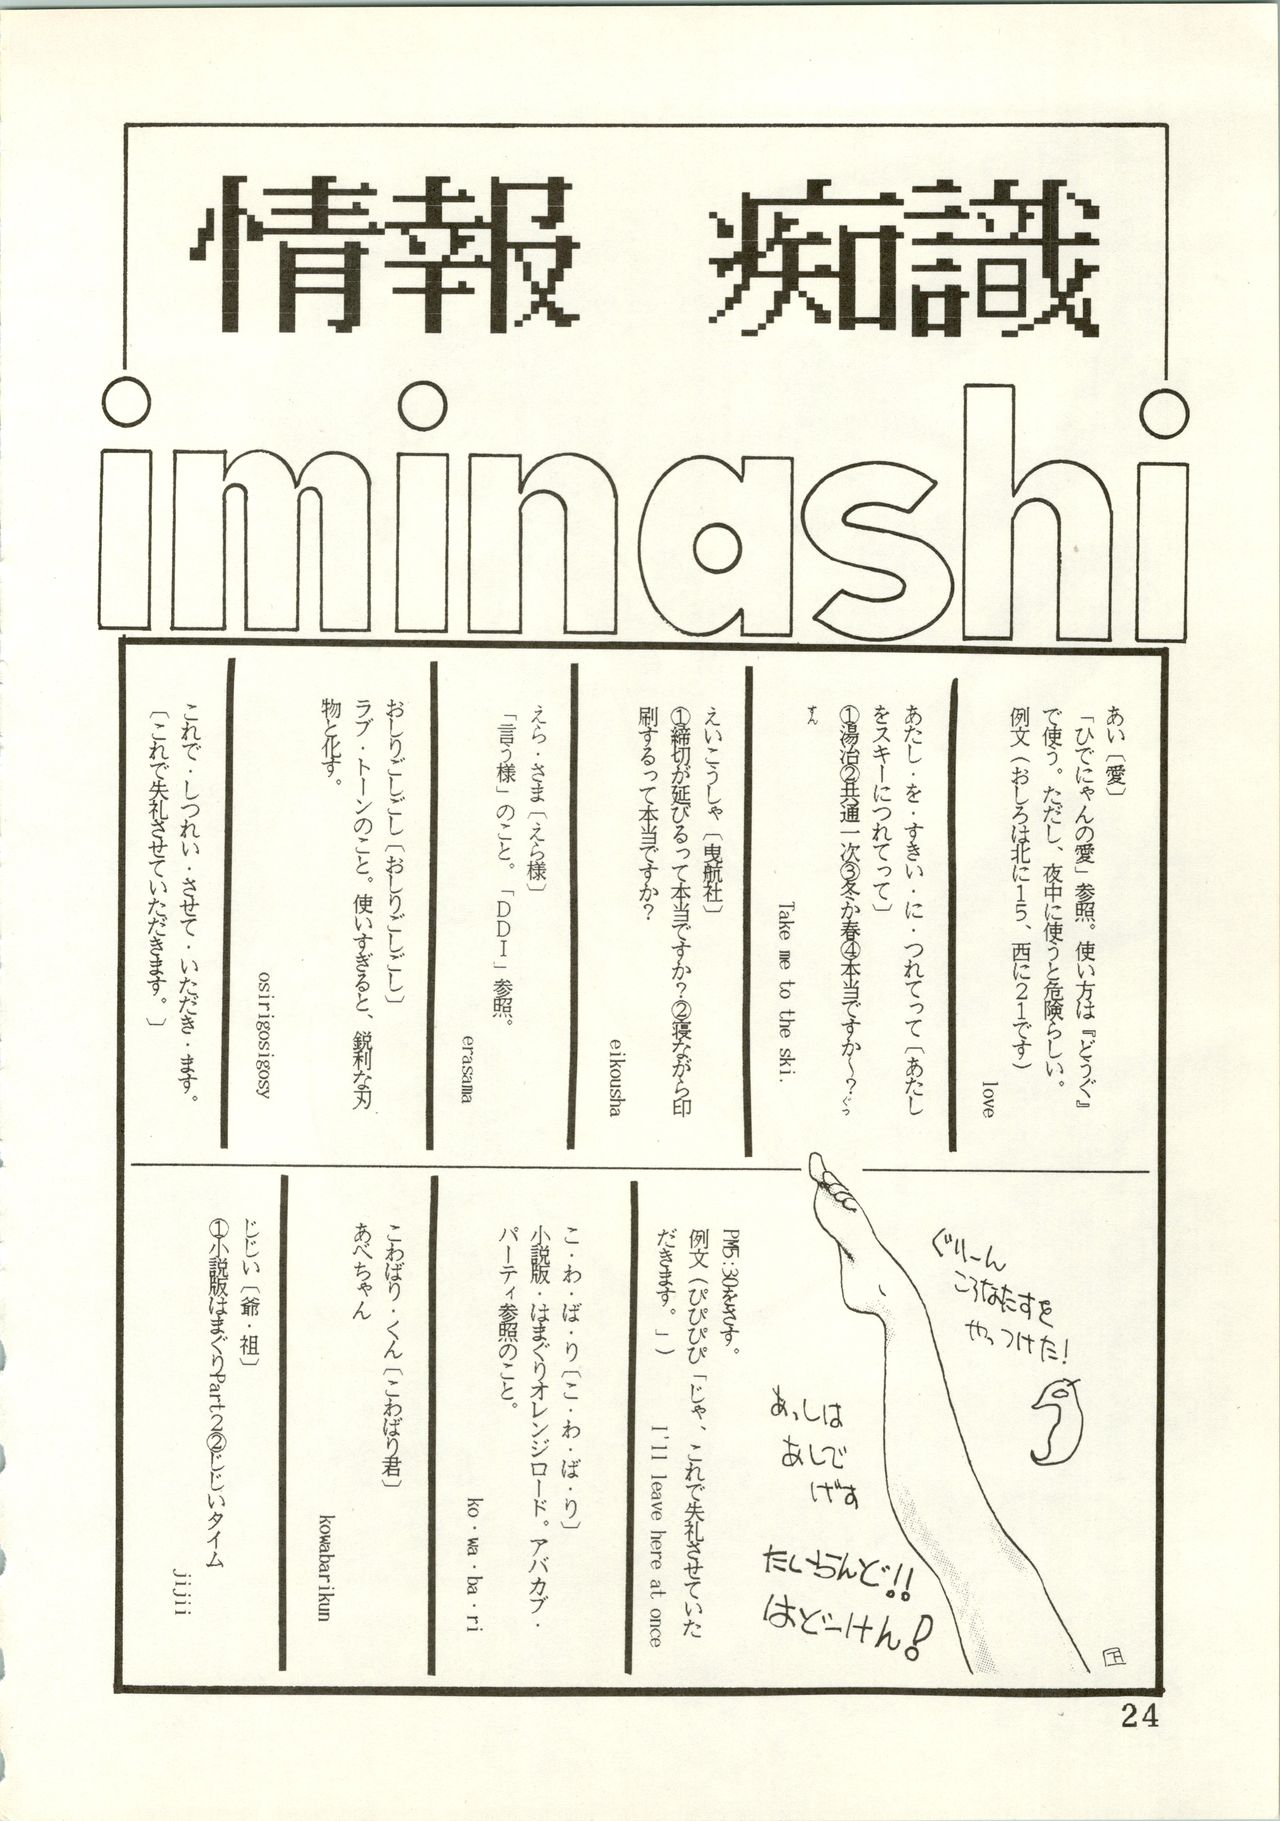 情報 痴識
iminashi
あい〔愛〕
「ひでにゃんの愛」参照。使い方は『どうぐ』
で使う。ただし、夜中に使うと危険らしい。
例文（おしろは北に１５、西に２１です）
love
あたし・を・すきい・に・つれてって〔あたし
をスキーにつれてって〕
①湯治②共通一次③冬か春④本当ですか～？ぐっ
すん
Take me to the ski.
えいこうしゃ〔曳航社〕
①締切が延びるって本当ですか？②寝ながら印
刷するって本当ですか？
eikousha
えら・さま〔えら様〕
「言う様」のこと。「ＤＤＩ」参照。
erasama
おしりごしごし〔おしりごしごし〕
ラブ・トーンのこと。使いすぎると、鋭利な刃
物と化す。
osirigosigosy
これで・しつれい・させて・いただき・ます。
〔これで失礼させていただきます。〕
PM5:30をさす。
例文（ぴぴぴぴ「じゃ、これで失礼させていた
だきます。」）
I'll leave here at once
こ・わ・ば・り〔こ・わ・ば・り〕
小説版・はまぐりオレンジロード。アバカブ・
パーティ参照のこと。
ko・wa・ba・ri
こわばり・くん〔こわばり君〕
あべちゃん
kowabarikun
じじい〔爺・祖〕
①小説版はまぐりPart2②じじいタイム
jijii
ぐりーん
ころなたすを
やっつけた!
あっしは
あしで
げす
たいらんど!!
はどーけん!
24